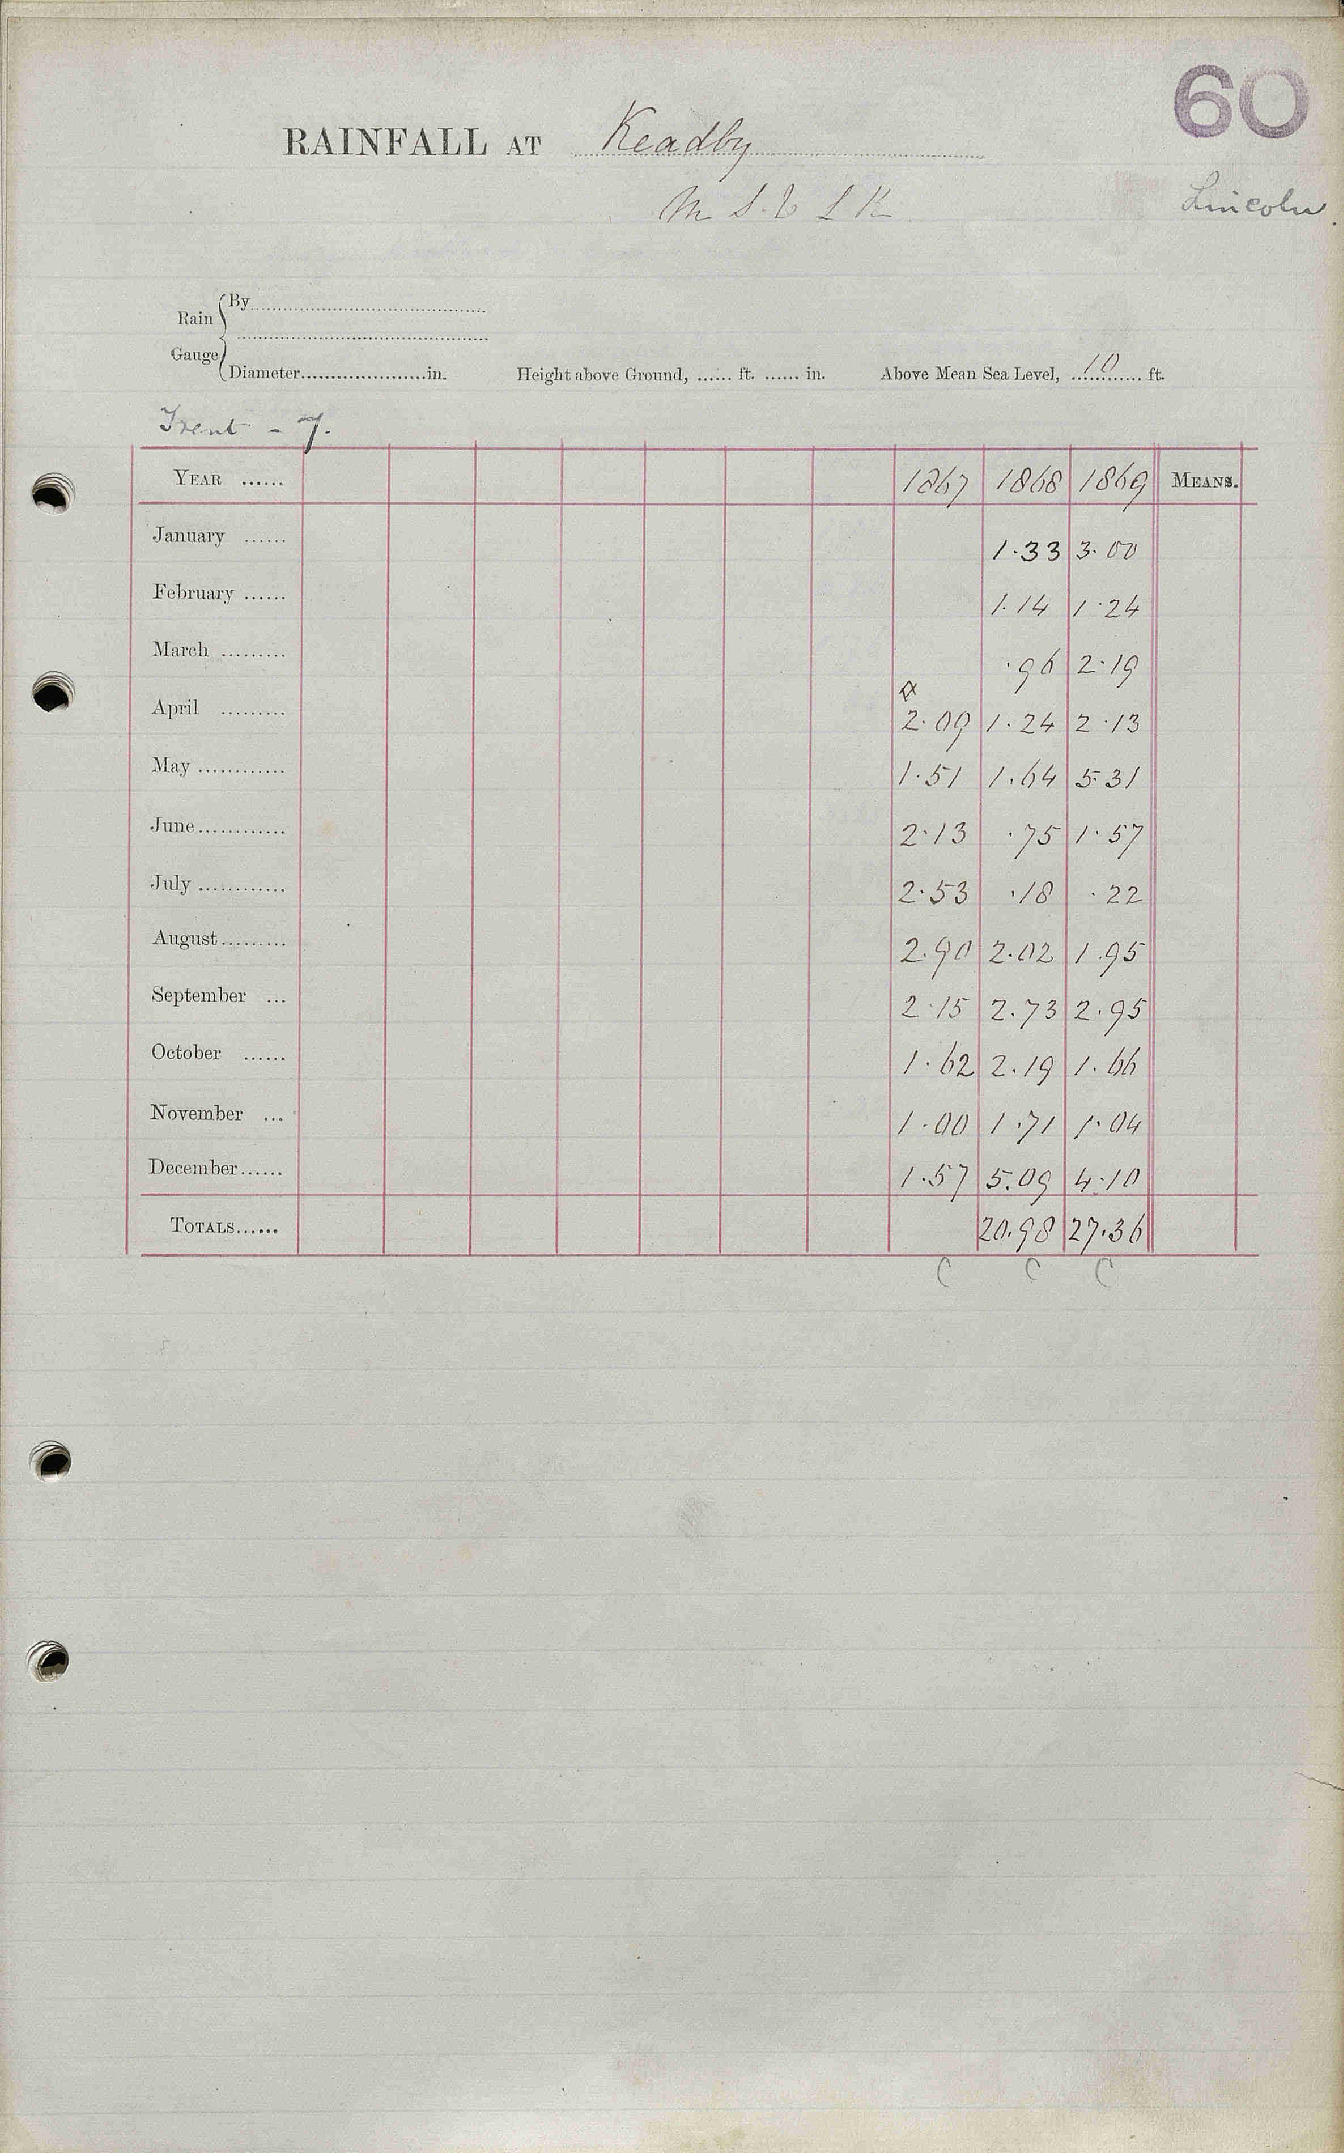 60
RAINFALL AT Keadby
M S. & L R
Lincoln.
Rain Gauge { By
Diameter in. Height above Ground, ...... ft. ...... in. Above Mean Sea Level, 10 ft.
Trent - 7.
YEAR ...... 1867 1868 1869 MEANS.
January ...... 1.33 3.00
February ...... 1.14 1.24
March ......... .96 2.19
April ......... 2.09 1.24 2.13
May ............ 1.51 1.64 5.31
June............ 2.13 .75 1.57
July ............ 2.53 .18 .22
August......... 2.90 2.02 1.95
September ... 2.15 2.73 2.95
October ...... 1.62 2.19 1.66
November ... 1.00 1.71 1.04
December...... 1.57 5.09 4.10
TOTALS...... 20.98 27.36
C C C